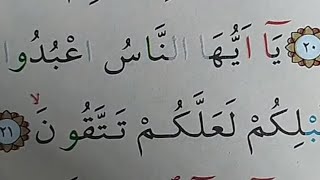 ٢٠ يَآ اَيُّهَا النَّاسُ اعْبُدُوا
لَعَلَّكُمْ تَتَّقُونَۙ ٢١